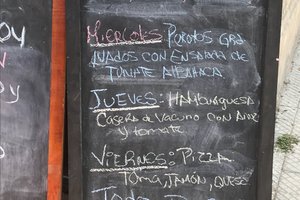 oy
MIERCOLES: POROTOS GRA
NADOS CON ENSALADA DE
TOMATE ALBAHACA
oy
JUEVES: HAMBURGUESA
CASERA DE VACUNO CON ARROZ
Y tomate
VIERNES: PIZZA
TOMA, JAMÓN, QUESO
Todo